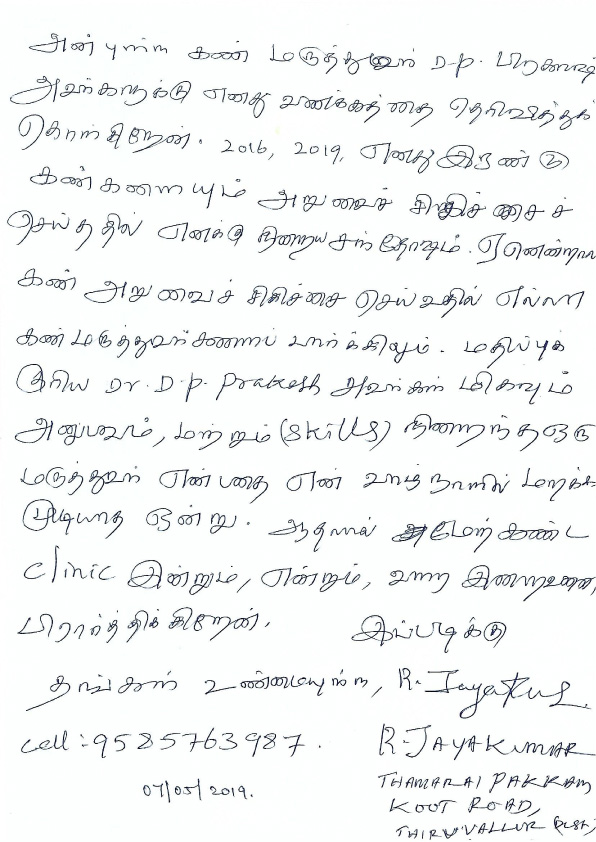 அன்புள்ள கண் மருத்துவர் D.P. பிரகாஷ்
அவர்களுக்கு எனது வணக்கத்தை தெரிவித்துக்
கொள்கிறேன். 2016, 2019, எனது இரண்டு
கண்களையும் அறுவைச் சிகிச்சைச்
செய்ததில் எனக்கு நிறைய சந்தோஷம். ஏனென்றால்
கண் அறுவைச் சிகிச்சை செய்வதில் எல்லா
கண் மருத்துவர்களைப் பார்க்கிலும். மதிப்புக்
குரிய Dr. D.P. Prakash அவர்கள் மிகவும்
அனுபவம், மற்றும் (Skills) நிறைந்த ஒரு
மருத்துவர் என்பதை என் வாழ்நாளில் மறக்க
முடியாத ஒன்று. ஆதலால் மேற்கண்ட
Clinic இன்றும், என்றும், வாழ இறைவனை,
பிரார்த்திக்கிறேன். இப்படிக்கு
தங்கள் உண்மையுள்ள, R. Jayakumar
Cell : 9585763987. R. JAYAKUMAR
THAMARAI PAKKAM
07/05/2019. KOOT ROAD,
THIRUVALLUR (DIST)